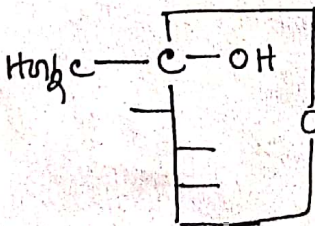 HOH₂C — C — OH
O